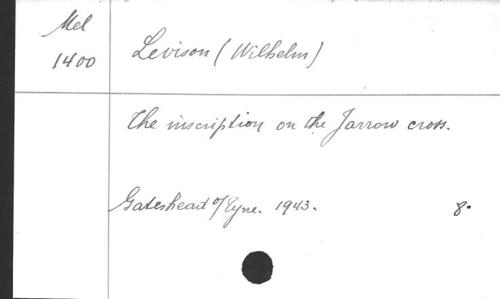 Mel
1400
Levison (Wilhelm)
The inscription on the Jarrow cross.
Gateshead o/Tyne. 1943. 8°